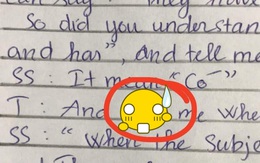 So did you understan
and has", and tell me
SS: It mean "Co-"
T: And me whe
SS: " When the Subje